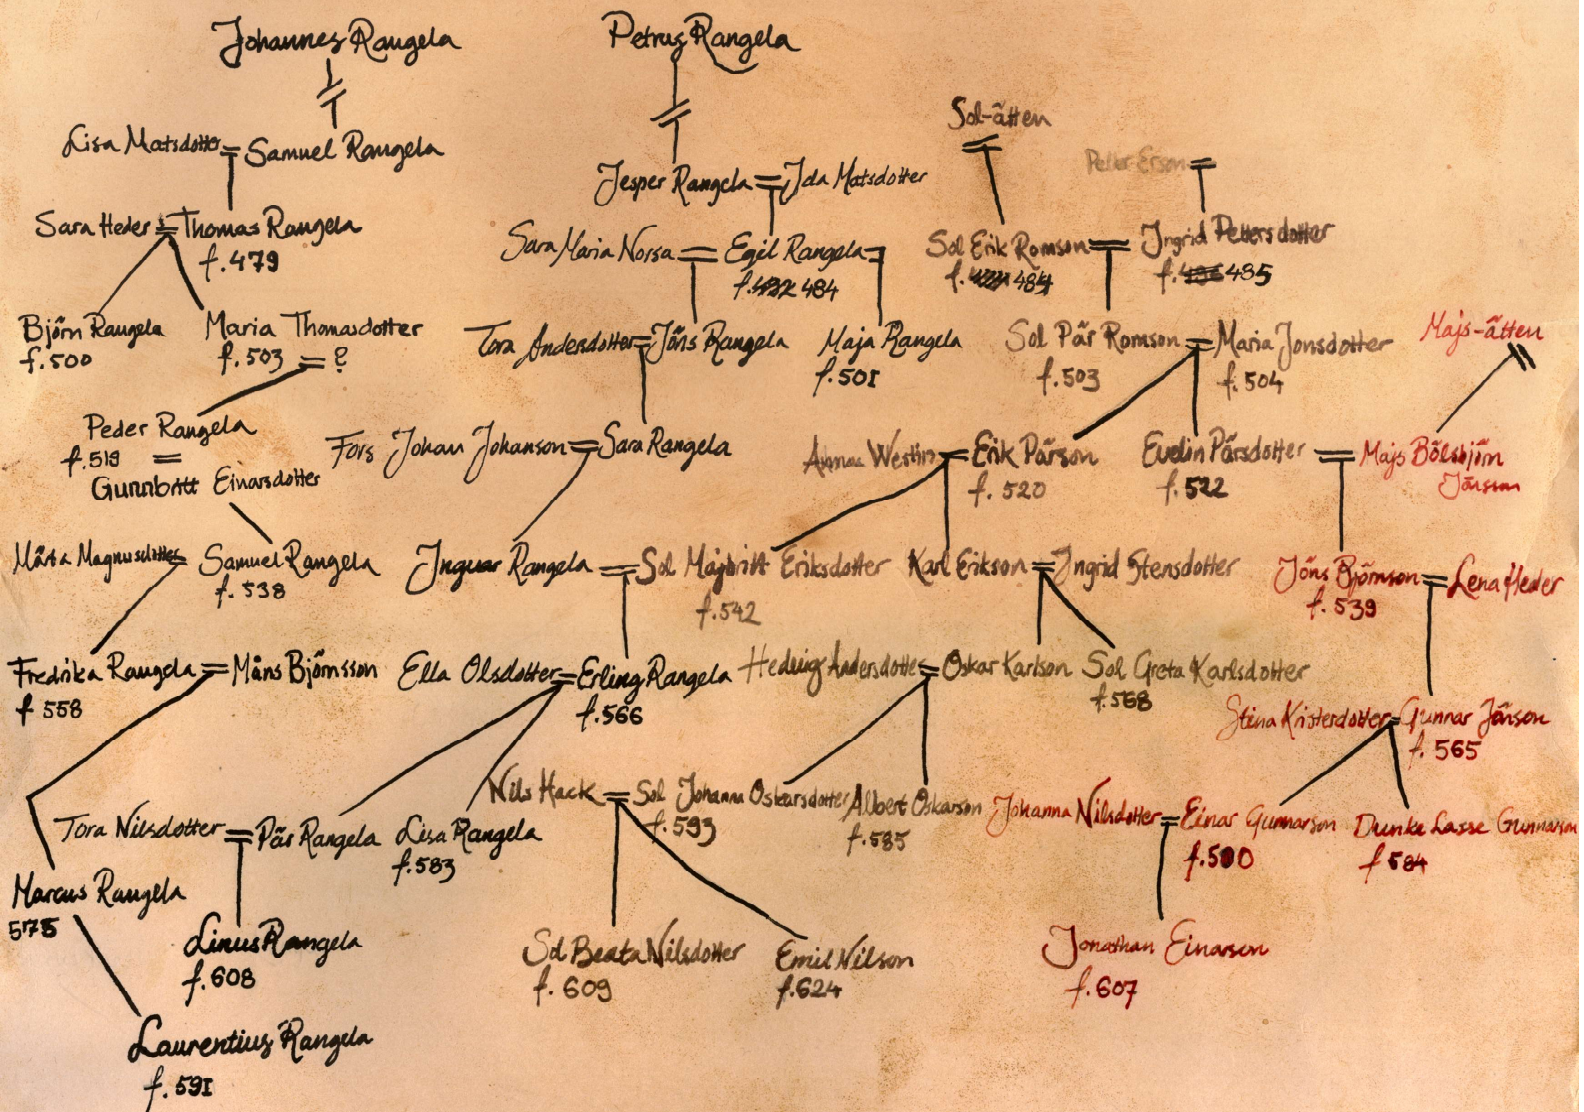 Johannes Rangela
Petrus Rangela
Sol-ätten
Lisa Matsdotter = Samuel Rangela
Petter Erson =
Jesper Rangela = Ida Matsdotter
Sara Heder = Thomas Rangela
f.479
Sara Maria Norsa = Egil Rangela =
484
Sol Erik Romson = Ingrid Pettersdotter
484
485
Björn Rangela
f.500
Maria Thomasdotter
f.503 = ?
Tora Andersdotter = Jöns Rangela
Maja Rangela
f.501
Sol Pär Romson = Maria Jonsdotter
f.503
f.504
Majs-ätten
Peder Rangela
f.519 =
Gunnbritt Einarsdotter
Fors Johan Johanson = Sara Rangela
Westin = Erik Pärson
f.520
Evelin Pärsdotter = Majs Bölsbjörn
f.522
Jönson
Märta Magnusdotter = Samuel Rangela
f.538
Inguar Rangela = Sol Majbritt Eriksdotter
f.542
Karl Erikson = Ingrid Stensdotter
Jöns Björnson = Lena Heder
f.539
Fredrika Rangela = Måns Björnsson
f 558
Ella Olsdotter = Erling Rangela
f.566
Hedvig Andersdotter = Oskar Karlson
Sol Greta Karlsdotter
f.568
Stina Kristerdotter = Gunnar Jönson
f.565
Nils Hack = Sol Johanna Oskarsdotter
f.593
Albert Oskarson
f.585
Johanna Nilsdotter = Einar Gunnarson
Dunke Lasse Gunnarson
f 584
Tora Nilsdotter = Pär Rangela
Lisa Rangela
f.583
Marcus Rangela
Linus Rangela
f.608
Sol Beata Nilsdotter
f.609
Emil Nilson
f.624
Jonathan Einarson
f.607
Laurentius Rangela
f.591